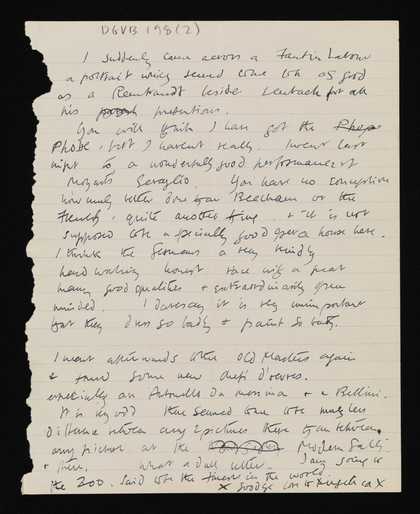 DGVB 198(2)
I suddenly came across a Fantin Latour
a portrait which seemed to me to be as good
as a Rembrandt beside Lenbach for all
his pretentions.
You will think I have got the
Phobe, but I havent really. I went last
night to a wonderfully good performance of
Mozarts Seraglio. You have no conception
how much better done than Beecham or the
French, quite another thing. & it is not
supposed to be a specially good opera house here.
I think the Germans a very kindly
hard working honest race with a great
many good qualities & extraordinarily open
minded. I daresay it is very unimportant
that they dress so badly & paint so badly.
I went afterwards to the Old Masters again
& found some new chefs d'oeuvres.
especially an Antonello da messina & a Bellini.
It is very odd there seemed to me to be much less
difference between any 2 pictures there than between
any picture at the Modern Gallery
& there. What a dull letter. I am going to
the Zoo. Said to be the finest in the world.